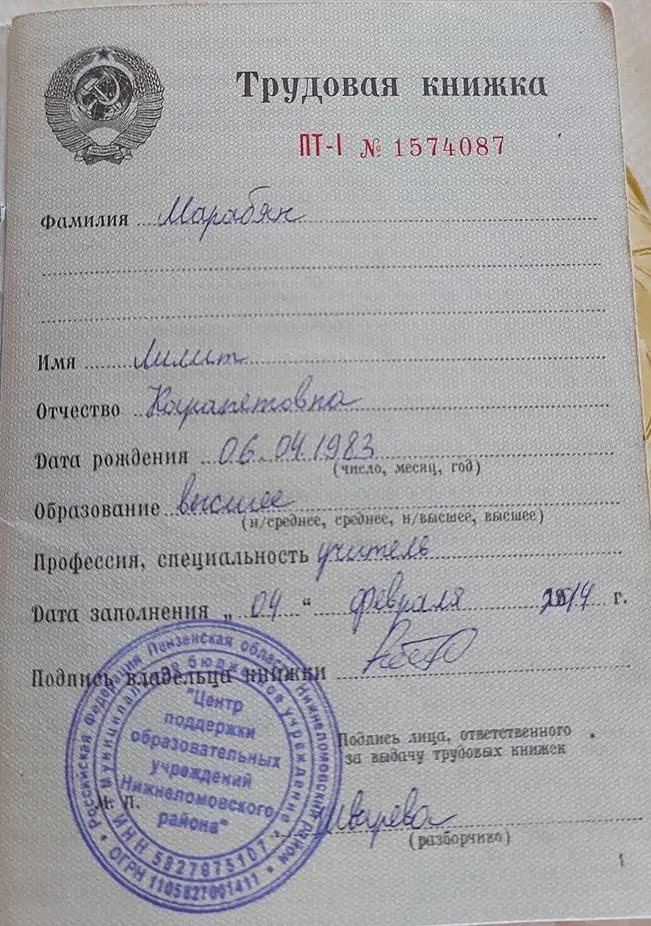 Трудовая книжка
ПТ-I № 1574087
Фамилия Марабян
Имя Лилит
Отчество Карапетовна
Дата рождения 06.04.1983
(число, месяц, год)
Образование высшее
(н/среднее, среднее, н/высшее, высшее)
Профессия, специальность учитель
Дата заполнения „ 04 “ февраля 2014 г.
Подпись владельца книжки
Российская Федерация Пензенская область Нижнеломовский район
Муниципальное бюджетное учреждение
"Центр
поддержки
образовательных
учреждений
Нижнеломовского
района"
ИНН 5827875107
ОГРН 1105827001411
М. П.
Подпись лица, ответственного
за выдачу трудовых книжек
(разборчиво)
1